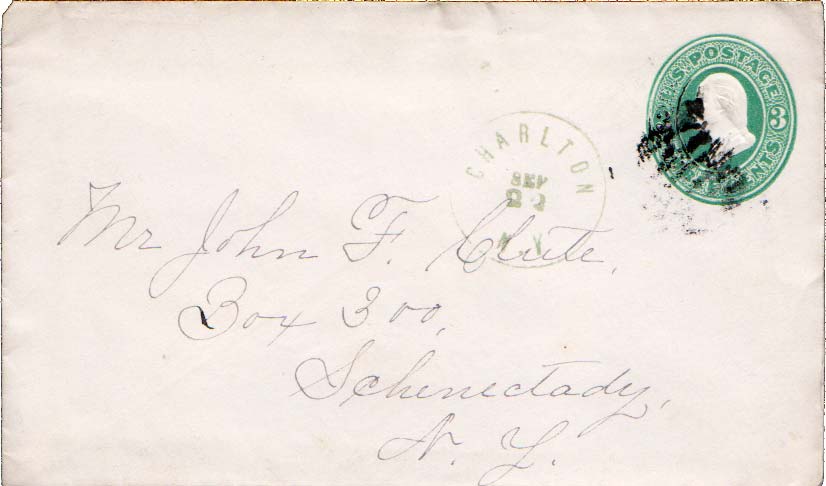 U.S. POSTAGE
3
CHARLTON
SEP
22
N.Y.
Mr John F. Clute,
Box 300,
Schenectady,
N. Y.